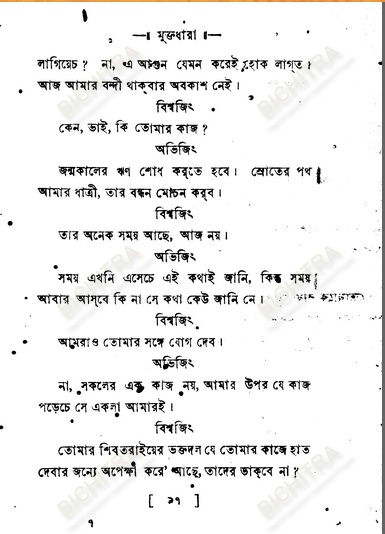 —॥ মুক্তধারা ॥—
লাগিয়েচ? না, এ আগুন যেমন করেই হোক লাগ্‌ত।
আজ আমার বন্দী থাক্‌বার অবকাশ নেই।
বিশ্বজিৎ
কেন, ভাই, কি তোমার কাজ?
অভিজিৎ
জন্মকালের ঋণ শোধ কর্‌তে হবে। স্রোতের পথ
আমার ধাত্রী, তার বন্ধন মোচন করব।
বিশ্বজিৎ
তার অনেক সময় আছে, আজ নয়।
অভিজিৎ
সময় এখনি এসেচে এই কথাই জানি, কিন্তু সময়
আবার আস্‌বে কি না সে কথা কেউ জানি নে।
বিশ্বজিৎ
আমরাও তোমার সঙ্গে যোগ দেব।
অভিজিৎ
না, সকলের এক কাজ নয়, আমার উপর যে কাজ
পড়েচে সে একলা আমারই।
বিশ্বজিৎ
তোমার শিবতরাইয়ের ভক্তদল যে তোমার কাজে হাত
দেবার জন্যে অপেক্ষা করে' আছে, তাদের ডাক্‌বে না?
[ ৯৭ ]
৭
BICHITRA